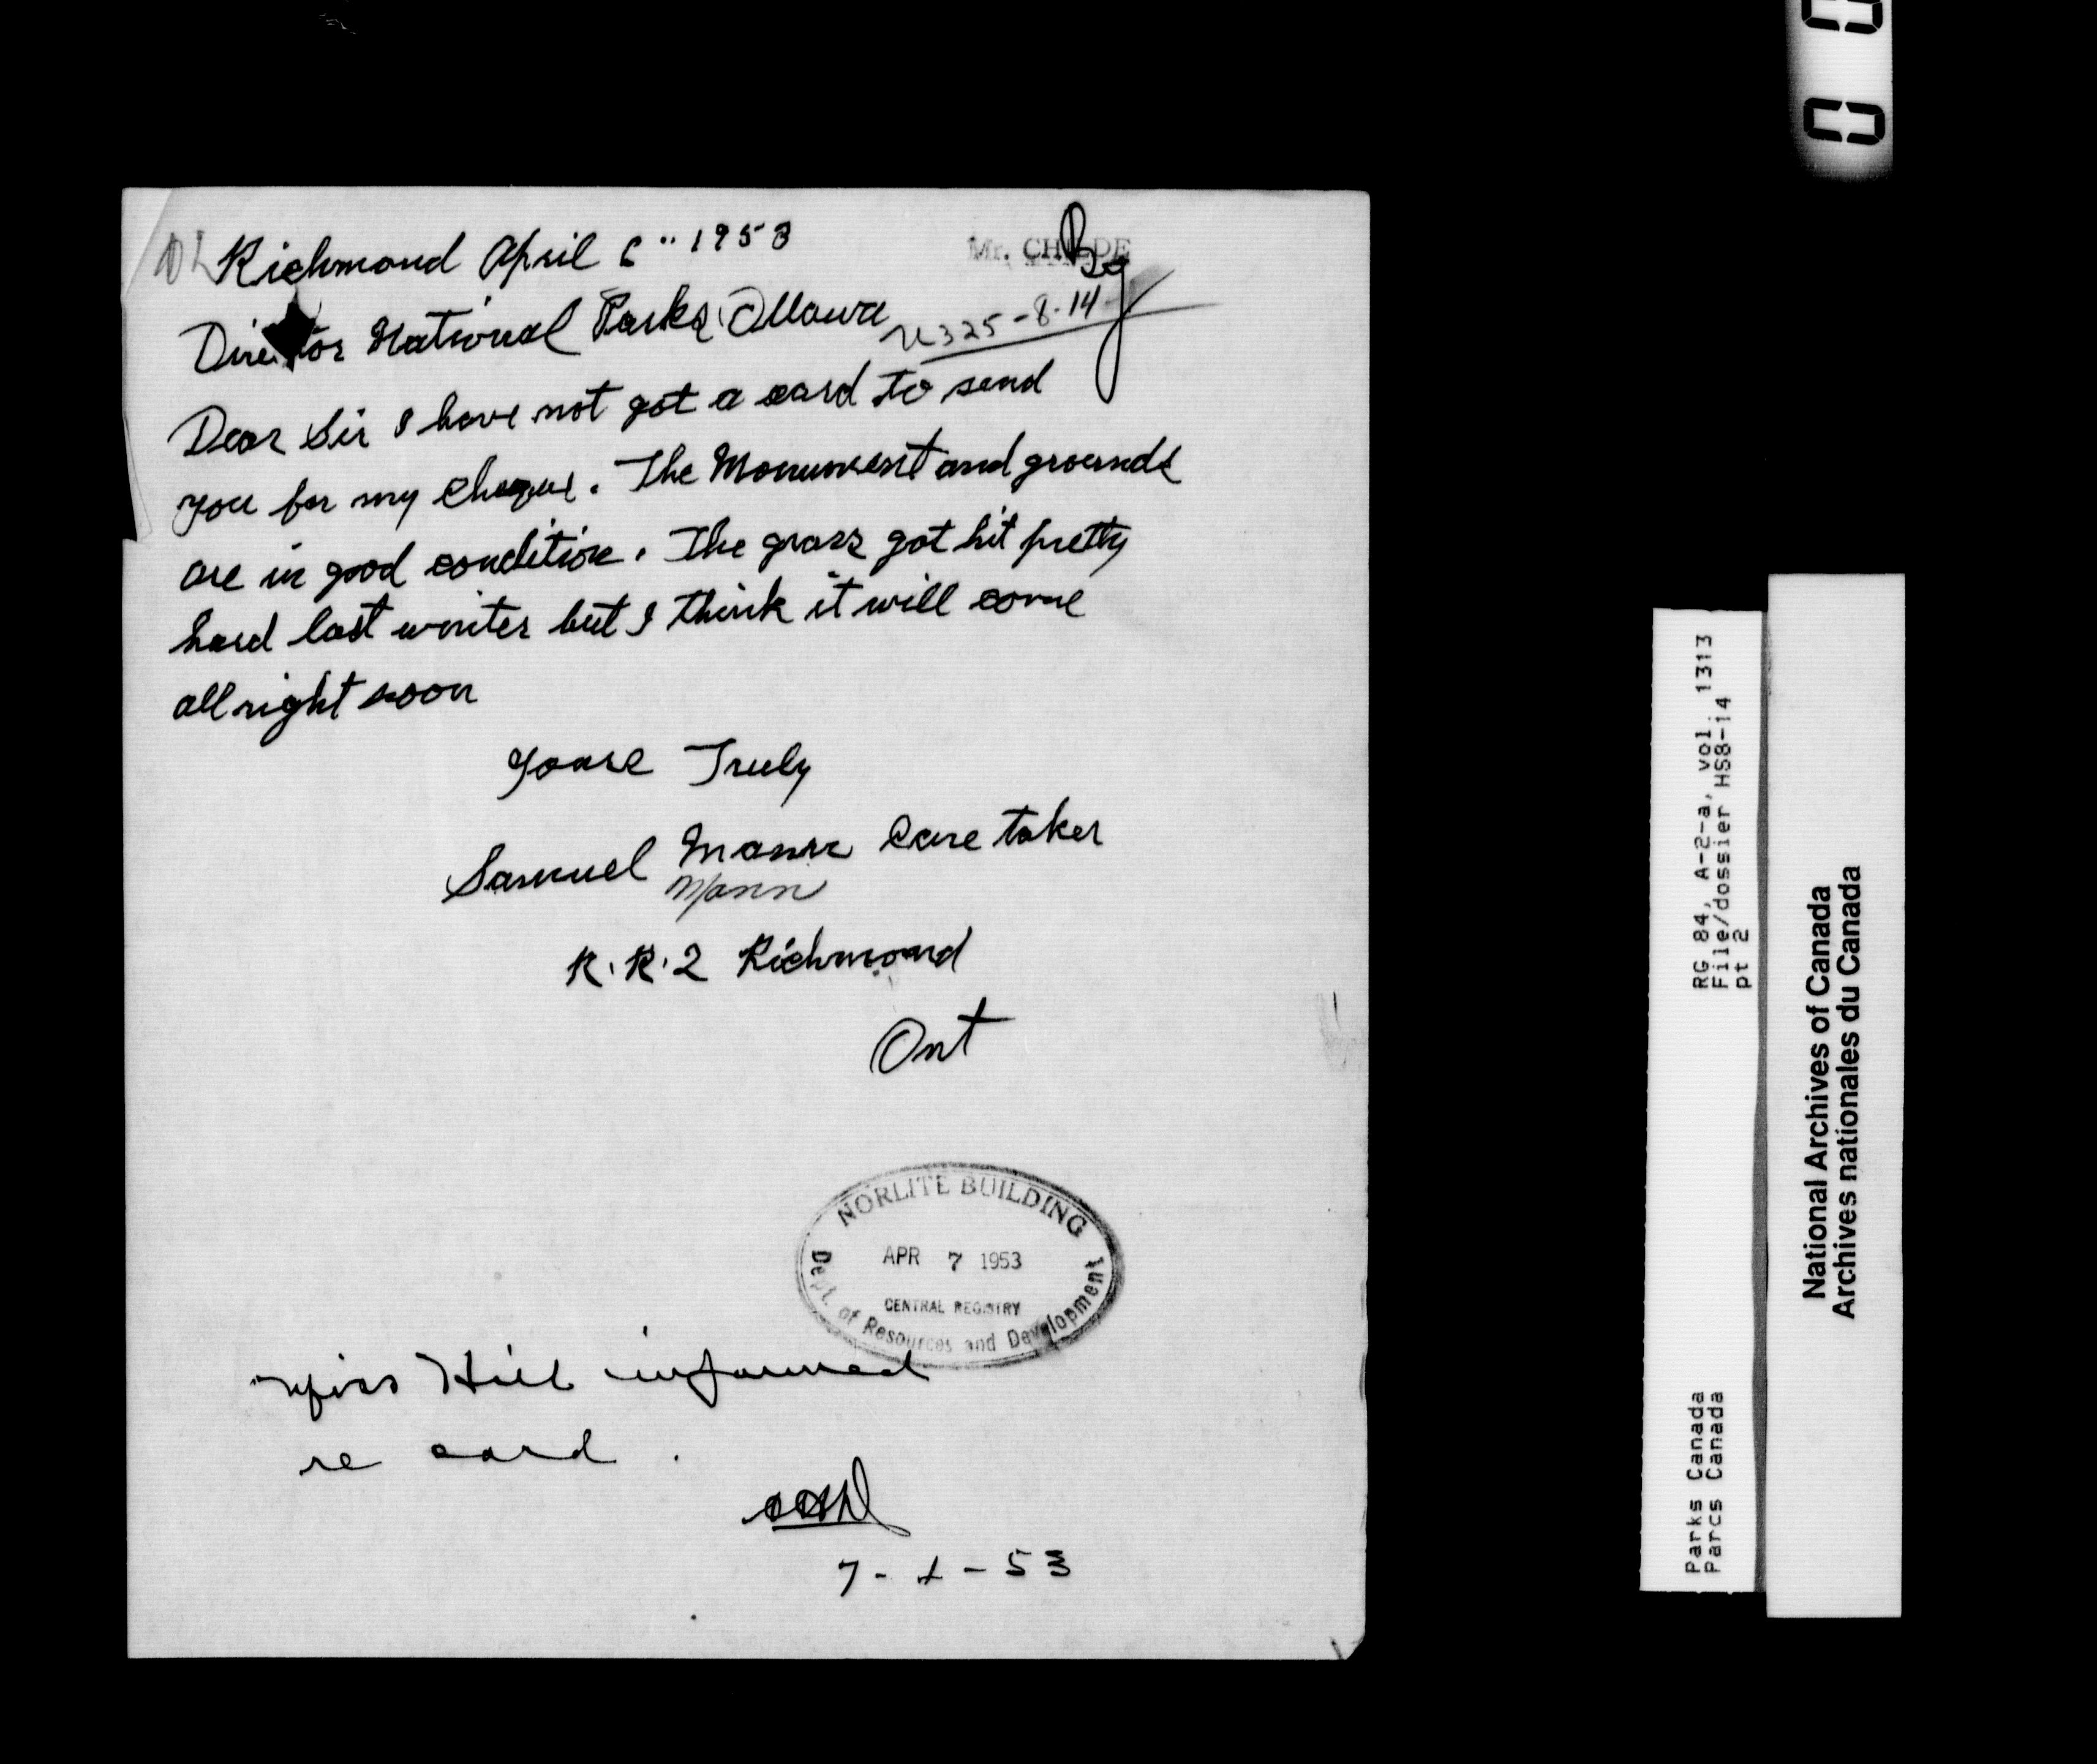 Richmond April 6" 1953
Mr. CHILDE
Director National Parks Ottawa
U325-8-14
Dear Sir I have not got a card to send
you for my cheque. The Monument and grounds
are in good condition. The grass got hit pretty
hard last winter but I think it will come
all right soon
Yours Truly
Samuel Mann Care taker
Mann
R.R.2 Richmond
Ont
NORLITE BUILDING
APR 7 1953
CENTRAL REGISTRY
Dept. of Resources and Development
Miss Hill informed
re card.
7-4-53
RG 84, A-2-a, vol. 1313
File/dossier HS8-14
pt 2
Parks Canada
Parcs Canada
National Archives of Canada
Archives nationales du Canada